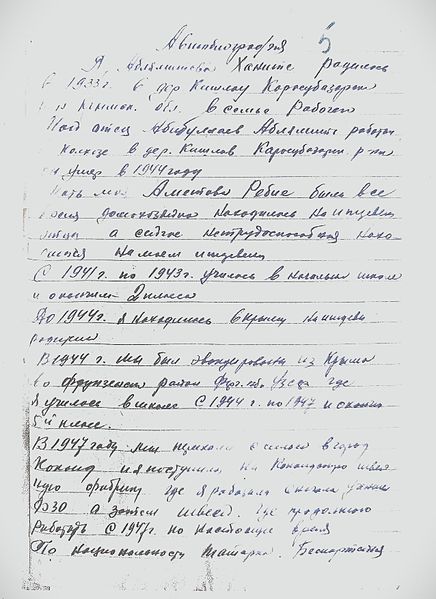 Автобиография 5
Я, Аблямитова Ханите родилась
в 1933 г. в дер Кишлав Карасубазарск
Крымск. обл. в семье Рабочего
отец Абибуллаев Аблямит работал
колхозе в дер. Кишлав Карасубазарск. р-на
умер в 1944 году
Мать моя Аметова Ребие была все
время домохозяйка находилась на иждевен
отца а сейчас нетрудоспособная нахо-
на моем иждевен
С 1941 г. по 1943 г. училась в начальн школе
и окончила 2 класса
До 1944 г. я находилась в Крыму на иждеви
родителей
В 1944 г. мы был эвакуированы из Крыма
во Фрунзенский район Ферг. об. Узсср где
я училась в школе С 1944 г. по 1947 и окончи
5й класс.
В 1947 году мы приехали с семьей в город
Коканд и я поступила на Кокандскую швей
ную фабрику где я работала сначала ученик
ФЗО а затем швеей. Где продолжаю
Работать С 1947 г. по настоящее время
По национальности татарка. Беспартийная